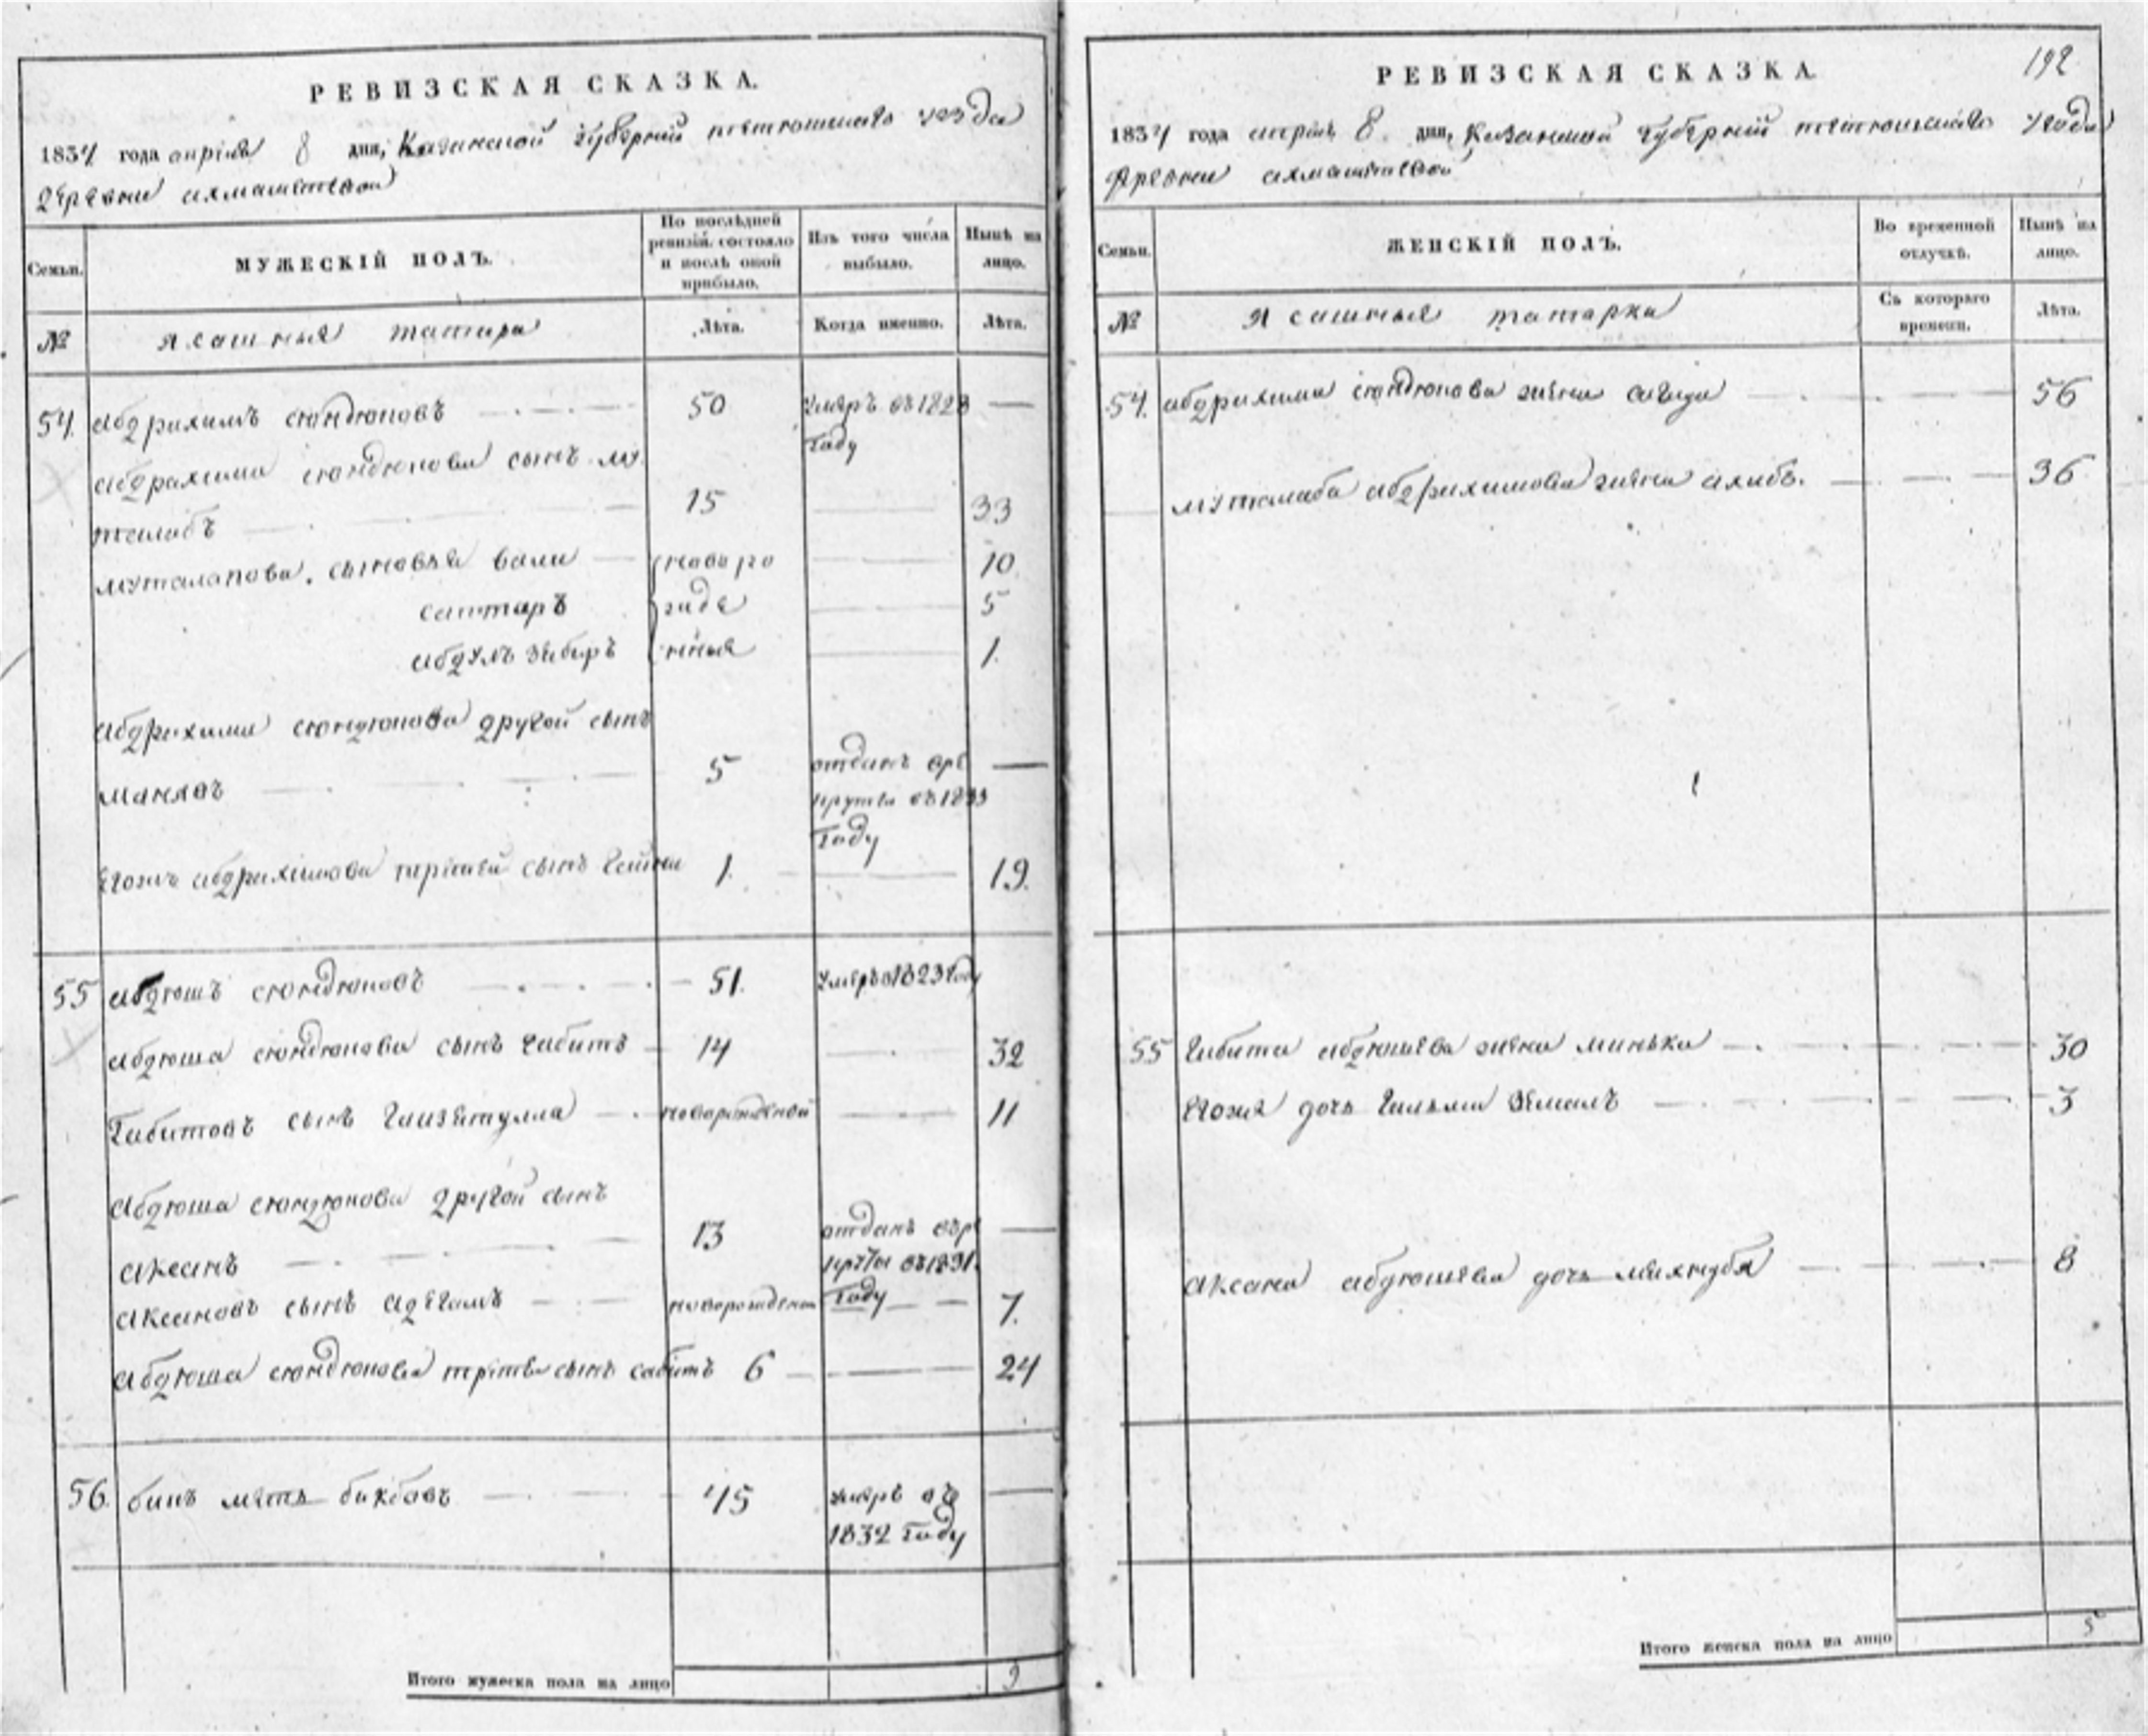 РЕВИЗСКАЯ СКАЗКА.
1834 года апреля 8 дня, Казанской губернии тетюшскаго уезда
деревни
Семьи.
МУЖЕСКІЙ ПОЛЪ.
По послѣдней ревизіи состояло и послѣ оной прибыло.
Изъ того числа выбыло.
Нынѣ на лицо.
№
Ясашныя татара
Лѣта.
Когда именно.
Лѣта.
54. абдрахимъ сюндюковъ 50 умеръ въ 1828
году
абдрахима сюндюкова сынъ му
талабъ 15 33
муталапова, сыновья вали новоро 10
саттаръ жде 5
абдулъ зябиръ нныя 1.
абдрахима сюндюкова другой сынъ
5 отданъ вре
круты въ 1833
году
егожъ абдрахимова третей сынъ 1. 19.
55 абдюшъ сюндюковъ 51. умеръ в 1823 году
абдюша сюндюкова сынъ габитъ 14 32
Габитовъ сынъ новорожденой 11
Абдюша сюндюкова другой сынъ
аксанъ 13 отданъ вър
круты въ 1831.
году
аксановъ сынъ адегамъ новорожденой 7.
абдюша сюндюкова третей сынъ сабитъ 6 24
56. бикъ метъ бикбовъ 45 умеръ въ
1832 году
Итого мужеска пола на лицо 9
192
РЕВИЗСКАЯ СКАЗКА.
1834 года апреля 8. дня, Казанской губернии тетюшскаго уезда
деревни
Семьи.
ЖЕНСКІЙ ПОЛЪ.
Во временной отлучкѣ.
Нынѣ на лицо.
№
Ясашныя татарки
Съ котораго времени.
Лѣта.
54. абдрахима сюндюкова жена сагида 56
муталаба абдрахимова жена 36
55 габита абдюшева жена минька 30
егожа дочь гильми земалъ 3
аксана абдюшева дочь 8
Итого женска пола на лицо 5